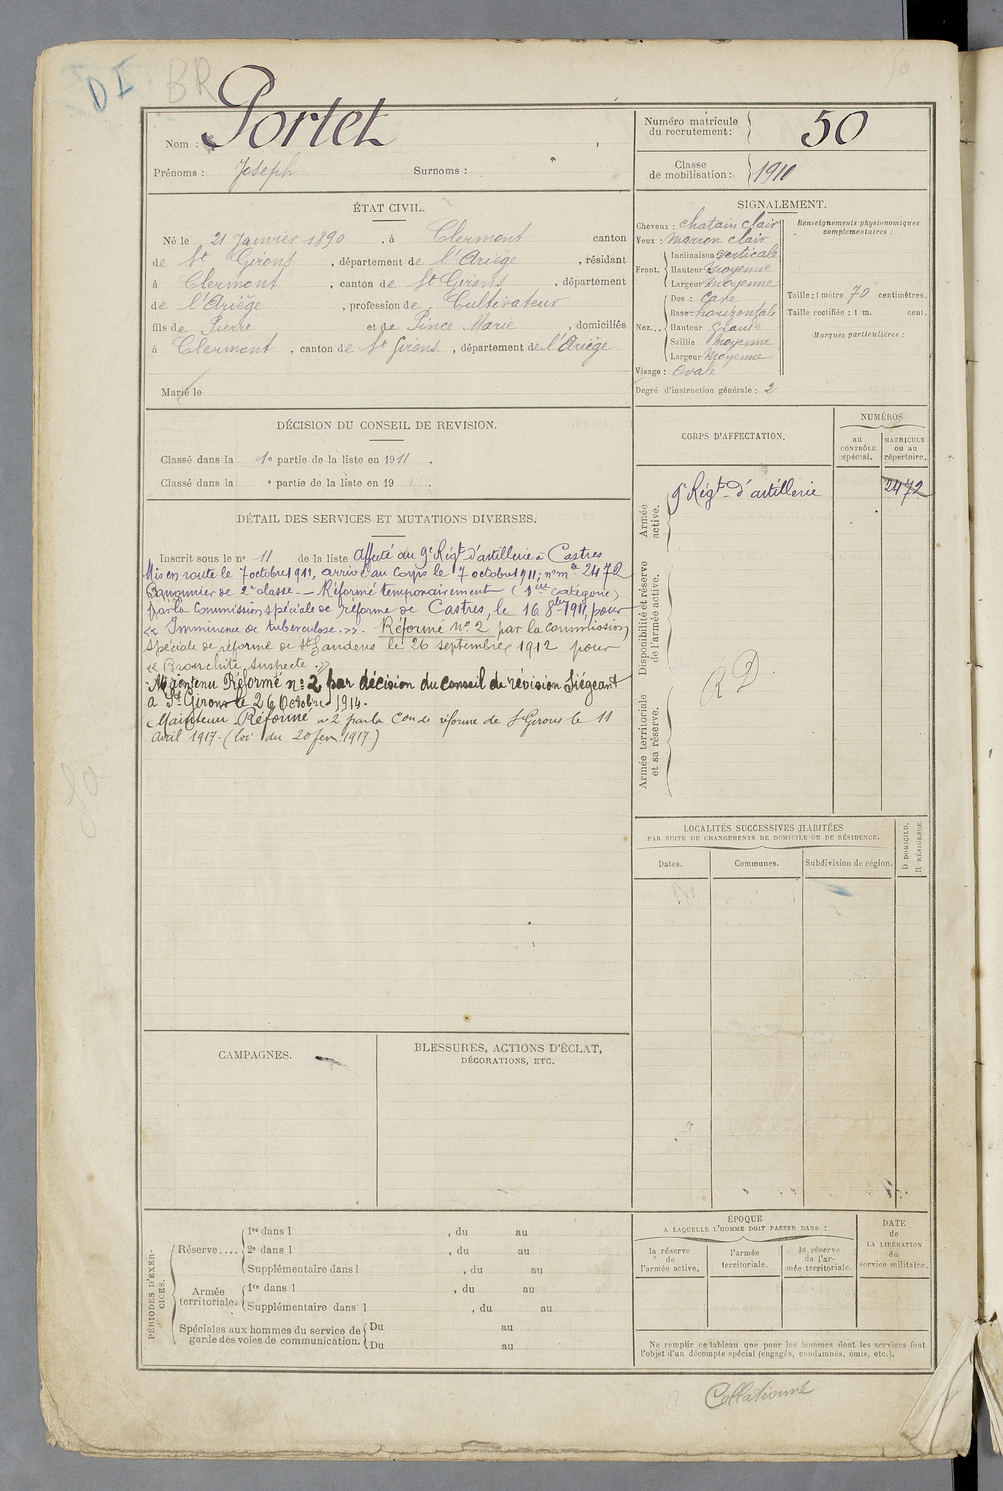 DI BR
50
Nom : Portet
Prénoms : Joseph Surnoms :
Numéro matricule du recrutement : 50
Classe de mobilisation : 1910
ÉTAT CIVIL.
Né le 21 Janvier 1890, à Clermont canton
de St Girons, département de l'Ariège, résidant
à Clermont, canton de St Girons, département
de l'Ariège, profession de Cultivateur
fils de Pierre et de Pince Marie, domiciliés
à Clermont, canton de St Girons, département de l'Ariège
Marié le
SIGNALEMENT.
Cheveux : chatain clair
Yeux : Marron clair
Front. Inclinaison verticale
Hauteur moyenne
Largeur moyenne
Nez... Dos : Cave
Base : horizontale
Hauteur Grande
Saillie Moyenne
Largeur Moyenne
Visage : Ovale
Degré d'instruction générale : 2
Renseignements physionomiques complémentaires :
Taille : 1 mètre 70 centimètres.
Taille rectifiée : 1 m. cent.
Marques particulières :
DÉCISION DU CONSEIL DE REVISION.
Classé dans la 1e partie de la liste en 1911.
Classé dans la e partie de la liste en 19 .
DÉTAIL DES SERVICES ET MUTATIONS DIVERSES.
Inscrit sous le no 11 de la liste Affecté au 9e Régt d'artillerie à Castres
Mis en route le 7 octobre 1911, arrivé au corps le 7 octobre 1911; no mle 2472
Canonnier de 2e classe. — Réformé temporairement (1ère Catégorie)
par la Commission spéciale de réforme de Castres, le 16 8bre 1911, pour
« Imminence de tuberculose. ». Réformé No 2 par la commission
spéciale de réforme de St Gaudens le 26 septembre 1912 pour
« Bronchite suspecte. »
Maintenu Réformé no 2 par décision du conseil de révision Siégeant
à St Girons le 26 Octobre 1914.
Maintenu Réformé no 2 par la Con de réforme de St Girons le 11
Avril 1917. (loi du 20 fev 1917.)
CORPS D'AFFECTATION.
NUMÉROS
au CONTRÔLE spécial.
MATRICULE ou au répertoire.
Armée active.
9e Régt d'artillerie 2472
Disponibilité et réserve de l'armée active.
Armée territoriale et sa réserve.
R D.
LOCALITÉS SUCCESSIVES HABITÉES
PAR SUITE DE CHANGEMENTS DE DOMICILE OU DE RÉSIDENCE.
Dates. Communes. Subdivision de région. D DOMICILE. R RÉSIDENCE.
CAMPAGNES.
BLESSURES, ACTIONS D'ÉCLAT,
DÉCORATIONS, ETC.
PÉRIODES D'EXERCICES.
Réserve.... 1re dans l , du au
2e dans l , du au
Supplémentaire dans l , du au
Armée territoriale. 1re dans l , du au
Supplémentaire dans l , du au
Spéciales aux hommes du service de garde des voies de communication. Du au
Du au
ÉPOQUE
A LAQUELLE L'HOMME DOIT PASSER DANS :
la réserve de l'armée active.
l'armée territoriale.
la réserve de l'armée territoriale.
DATE DE LA LIBÉRATION du service militaire.
Ne remplir ce tableau que pour les hommes dont les services font
l'objet d'un décompte spécial (engagés, condamnés, omis, etc.).
Collationné